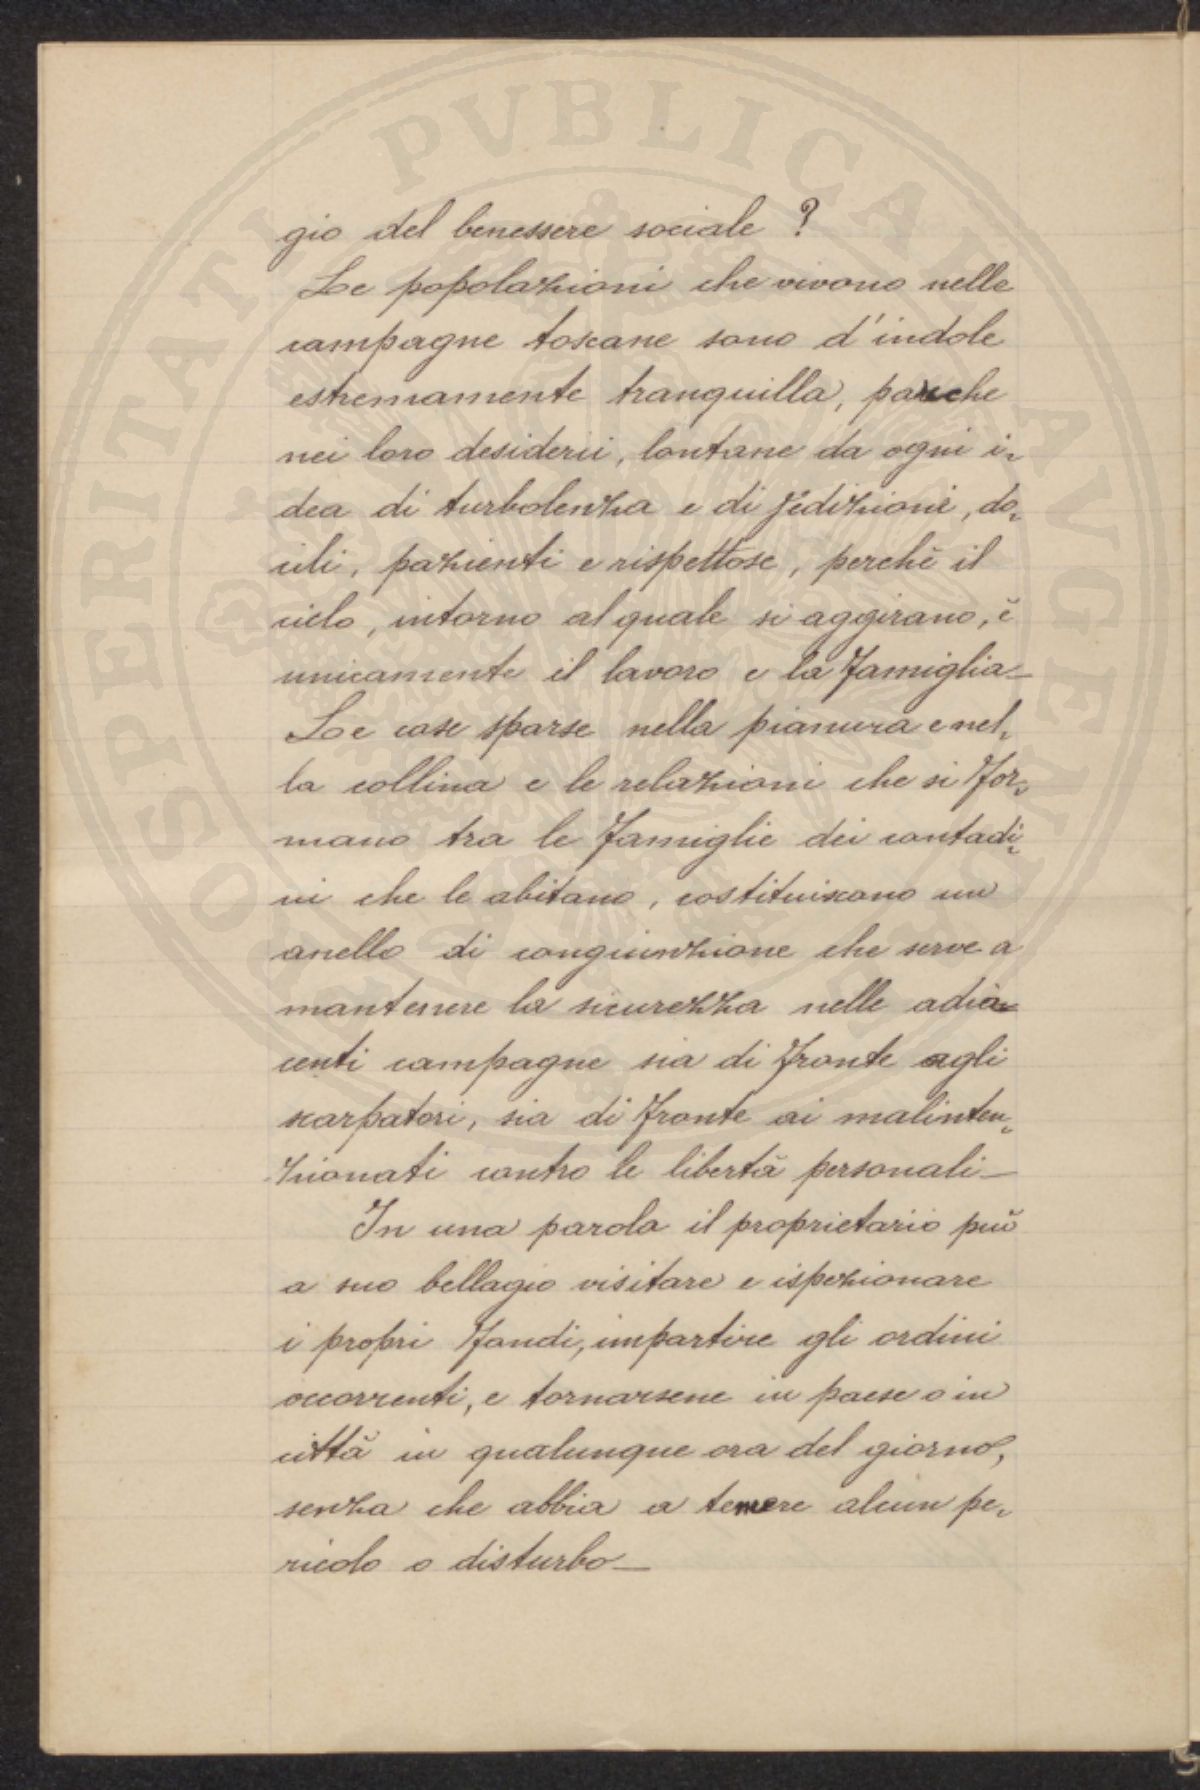 gio del benessere sociale ?
Le popolazioni che vivono nelle
campagne toscane sono d'indole
estremamente tranquilla, parche
nei loro desiderii, lontane da ogni i-
dea di turbolenza e di sedizioni, do-
cili, pazienti e rispettose, perchè il
cielo, intorno al quale si aggirano, è
unicamente il lavoro e la famiglia—
Le case sparse nella pianura e nel-
la collina e le relazioni che si for-
mano tra le famiglie dei contadi-
ni che le abitano, costituiscono un
anello di congiunzione che serve a
mantenere la sicurezza nelle adia-
centi campagne sia di fronte agli
scarpatori, sia di fronte ai malinten-
zionati contro le libertà personali—
In una parola il proprietario può
a suo bellagio visitare e ispezionare
i propri fondi, impartire gli ordini
occorrenti, e tornarsene in paese o in
città in qualunque ora del giorno,
senza che abbia a temere alcun pe-
ricolo o disturbo—
PVBLICAE
PROSPERITATI
AVGENDAE